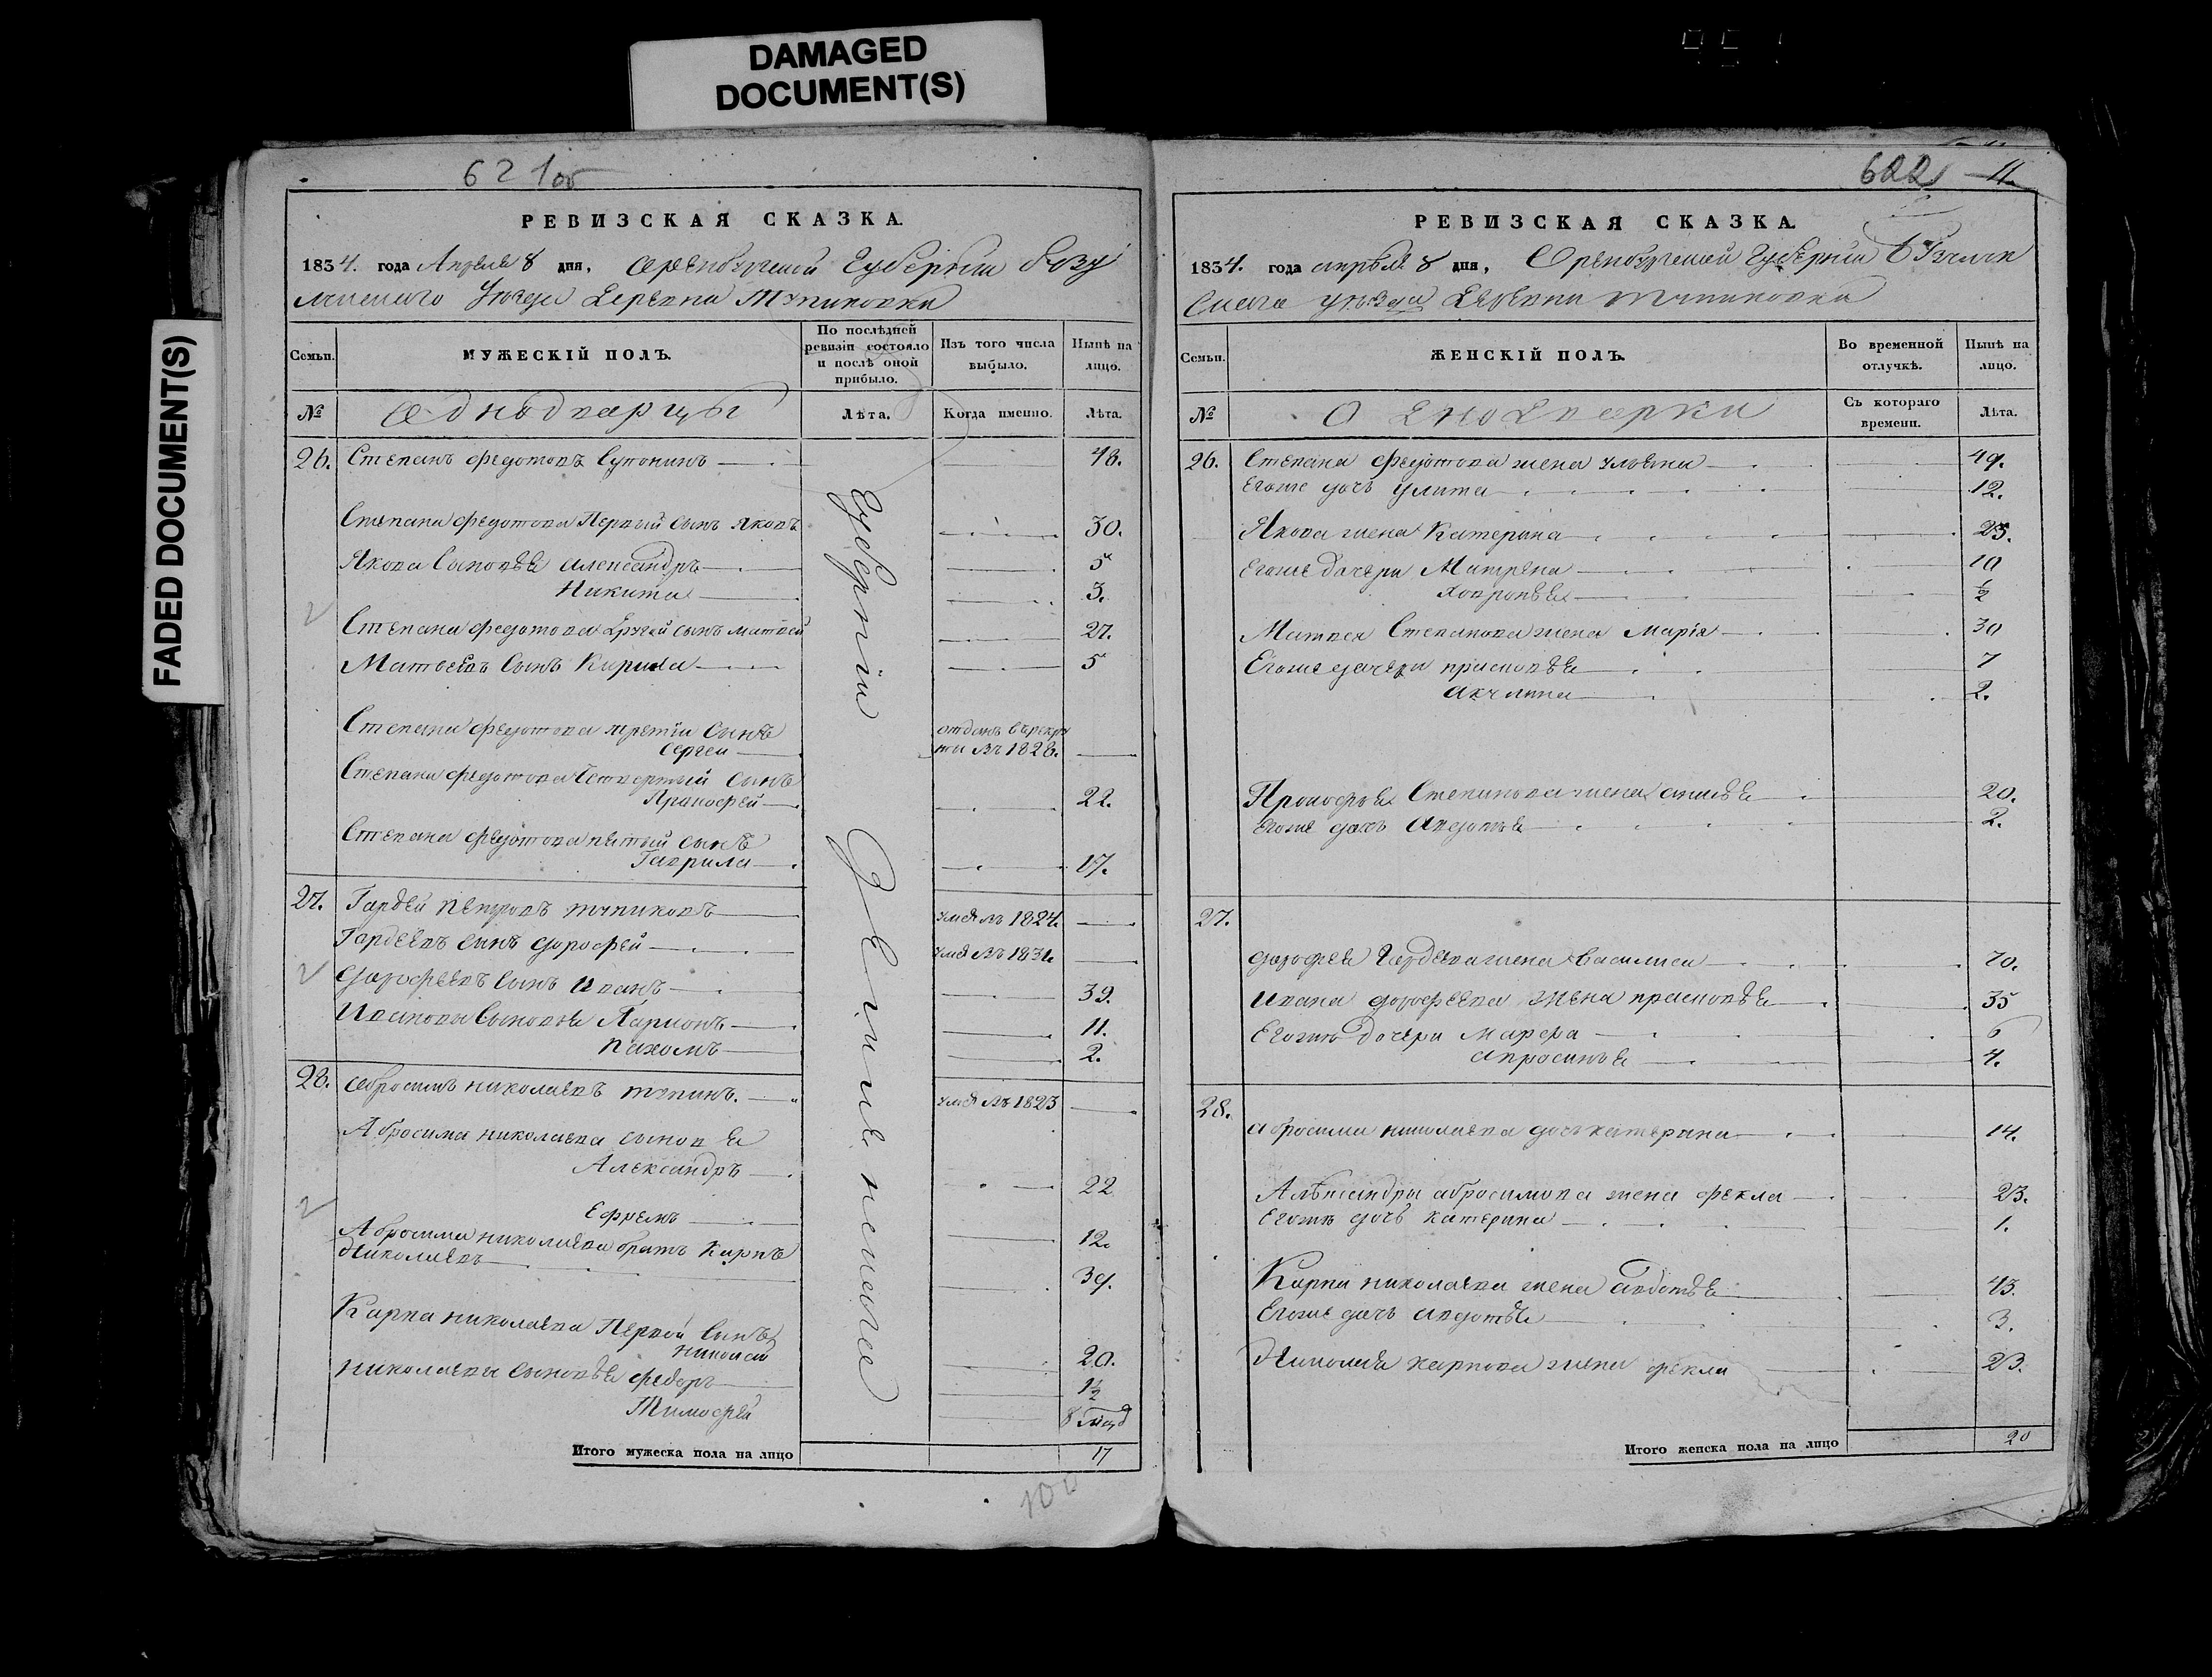 DAMAGED
DOCUMENT(S)
FADED DOCUMENT(S)
621 об
РЕВИЗСКАЯ СКАЗКА.
1834. года Апреля 8 дня, Оренбургской Губернии Бузу
лукского Уезда Деревни Тупиковки
Семьи.
МУЖЕСКІЙ ПОЛЪ.
По послѣдней
ревизіи состояло
и послѣ оной
прибыло.
Изъ того числа
выбыло.
Нынѣ на
лицо.
№
Однодварцы
Лѣта.
Когда именно.
Лѣта.
26. Степанъ Федотовъ 48.
Степана Федотова Первый сынъ Яковъ 30.
Якова Сыновья Александръ 5
Никита 3.
Степана Федотова Другой сынъ Матвей 27.
Матвеевъ Сынъ Кирила 5
Степана Федотова третiй Сынъ
Сергей отданъ въ рекру
ты въ 1828.
Степана Федотова Четвертый Сынъ
Пракофей 22.
Степана Федотова пятый сынъ
Гаврила 17.
27. Гардей Петровъ Тупиковъ умеръ въ 1824.
Гардеевъ сынъ Дорофей умеръ въ 1831.
Дорофеевъ сынъ Иванъ 39.
Ивановы Сыновья Ларионъ 11.
Пахомъ 2.
28. Абросимъ Николаевъ Тупикъ. умеръ въ 1823
Абросима Николаева сыновья
Александръ 22
Ефремъ 12.
Абросима Николаева братъ Карпъ
Николаевъ 39.
Карпа Николаева Первой Сынъ
Николай 20.
Николаевы сыновья Федоръ 1½
Тимофей 8 мѣс
Губерніи
Итого мужеска пола на лицо 17
100
622
11.
РЕВИЗСКАЯ СКАЗКА.
1834. года апреля 8 дня, Оренбургской Губернии Бузулук
скаго уезда Деревни Тупиковки
Семьи.
ЖЕНСКІЙ ПОЛЪ.
Во временной
отлучкѣ.
Нынѣ на
лицо.
№
Однодворки
Съ котораго
времени.
Лѣта.
26. Степана Федотова жена Ульяна 49.
Егоже дочь Улита 12.
Якова жена Катерина 25.
Егоже дочери Матрена 10
Ховронья ½
Матвея Степанова жена Марiя 30
Егоже дочери Прасковья 7
Акулина 2.
Прокофья Степанова жена 20.
Егоже дочь Авдотья 2.
27.
Дорофея Гордеева жена Василиса 70.
Ивана Дорофеева жена Прасковья 35
Егоже дочери Марфа 6
Апросинья 4.
28.
Абросима Николаева дочь Катерина 14.
Александра Абросимова жена Фекла 23.
Егоже дочь Катерина 1.
Карпа Николаева жена Авдотья 43.
Егоже дочь Авдотья 3.
Николая Карпова жена Фекла 23.
Итого женска пола на лицо 20